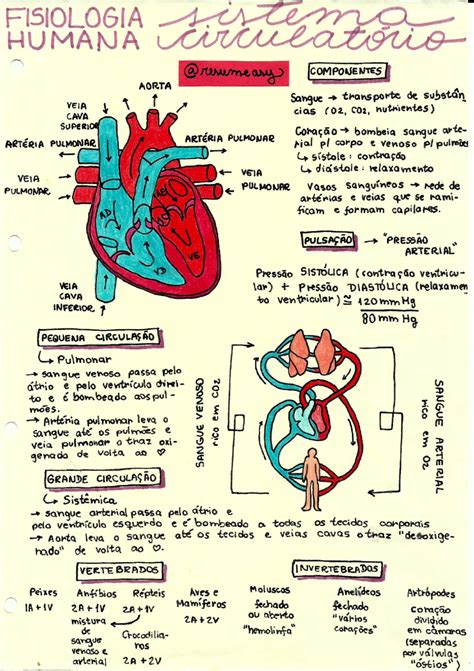 FISIOLOGIA HUMANA
sistema circulatório
@resumeasy
AORTA
VEIA CAVA SUPERIOR
ARTÉRIA PULMONAR
ARTÉRIA PULMONAR
VEIA PULMONAR
VEIA PULMONAR
AD
AE
VD
VE
VEIA CAVA INFERIOR
COMPONENTES
Sangue → transporte de substân
cias (O2, CO2, nutrientes)
Coração → bombeia sangue arte
rial p/ corpo e venoso p/ pulmões
↳ sístole: contração
↳ diástole: relaxamento
Vasos sanguíneos → rede de
artérias e veias que se rami
ficam e formam capilares.
PULSAÇÃO → "PRESSÃO
ARTERIAL"
Pressão SISTÓLICA (contração ventricu
lar) + Pressão DIASTÓLICA (relaxamen
to ventricular) ≅ 120 mm Hg
80 mm Hg
PEQUENA CIRCULAÇÃO
↳ Pulmonar
→ sangue venoso passa pelo
átrio e pelo ventrículo direi
to e é bombeado aos pul
mões.
→ Artéria pulmonar leva o
sangue até os pulmões e
veia pulmonar o traz oxi
genado de volta ao ♡.
SANGUE VENOSO
rico em CO2
SANGUE ARTERIAL
rico em O2
GRANDE CIRCULAÇÃO
↳ Sistêmica
→ sangue arterial passa pelo átrio e
pelo ventrículo esquerdo e é bombeado a todos os tecidos corporais
→ Aorta leva o sangue até os tecidos e veias cavas o traz "desoxige
nado" de volta ao ♡
VERTEBRADOS
Peixes
1A + 1V
Anfíbios
2A + 1V
mistura de sangue venoso e arterial
Répteis
2A + 1V
Crocodilia
nos
2A + 2V
Aves e Mamíferos
2A + 2V
INVERTEBRADOS
Moluscos
fechado ou aberto
"hemolinfa"
Anelídeos
fechado
"vários corações"
Artrópodes
coração dividido em câmaras
(separadas por válvulas "óstios")